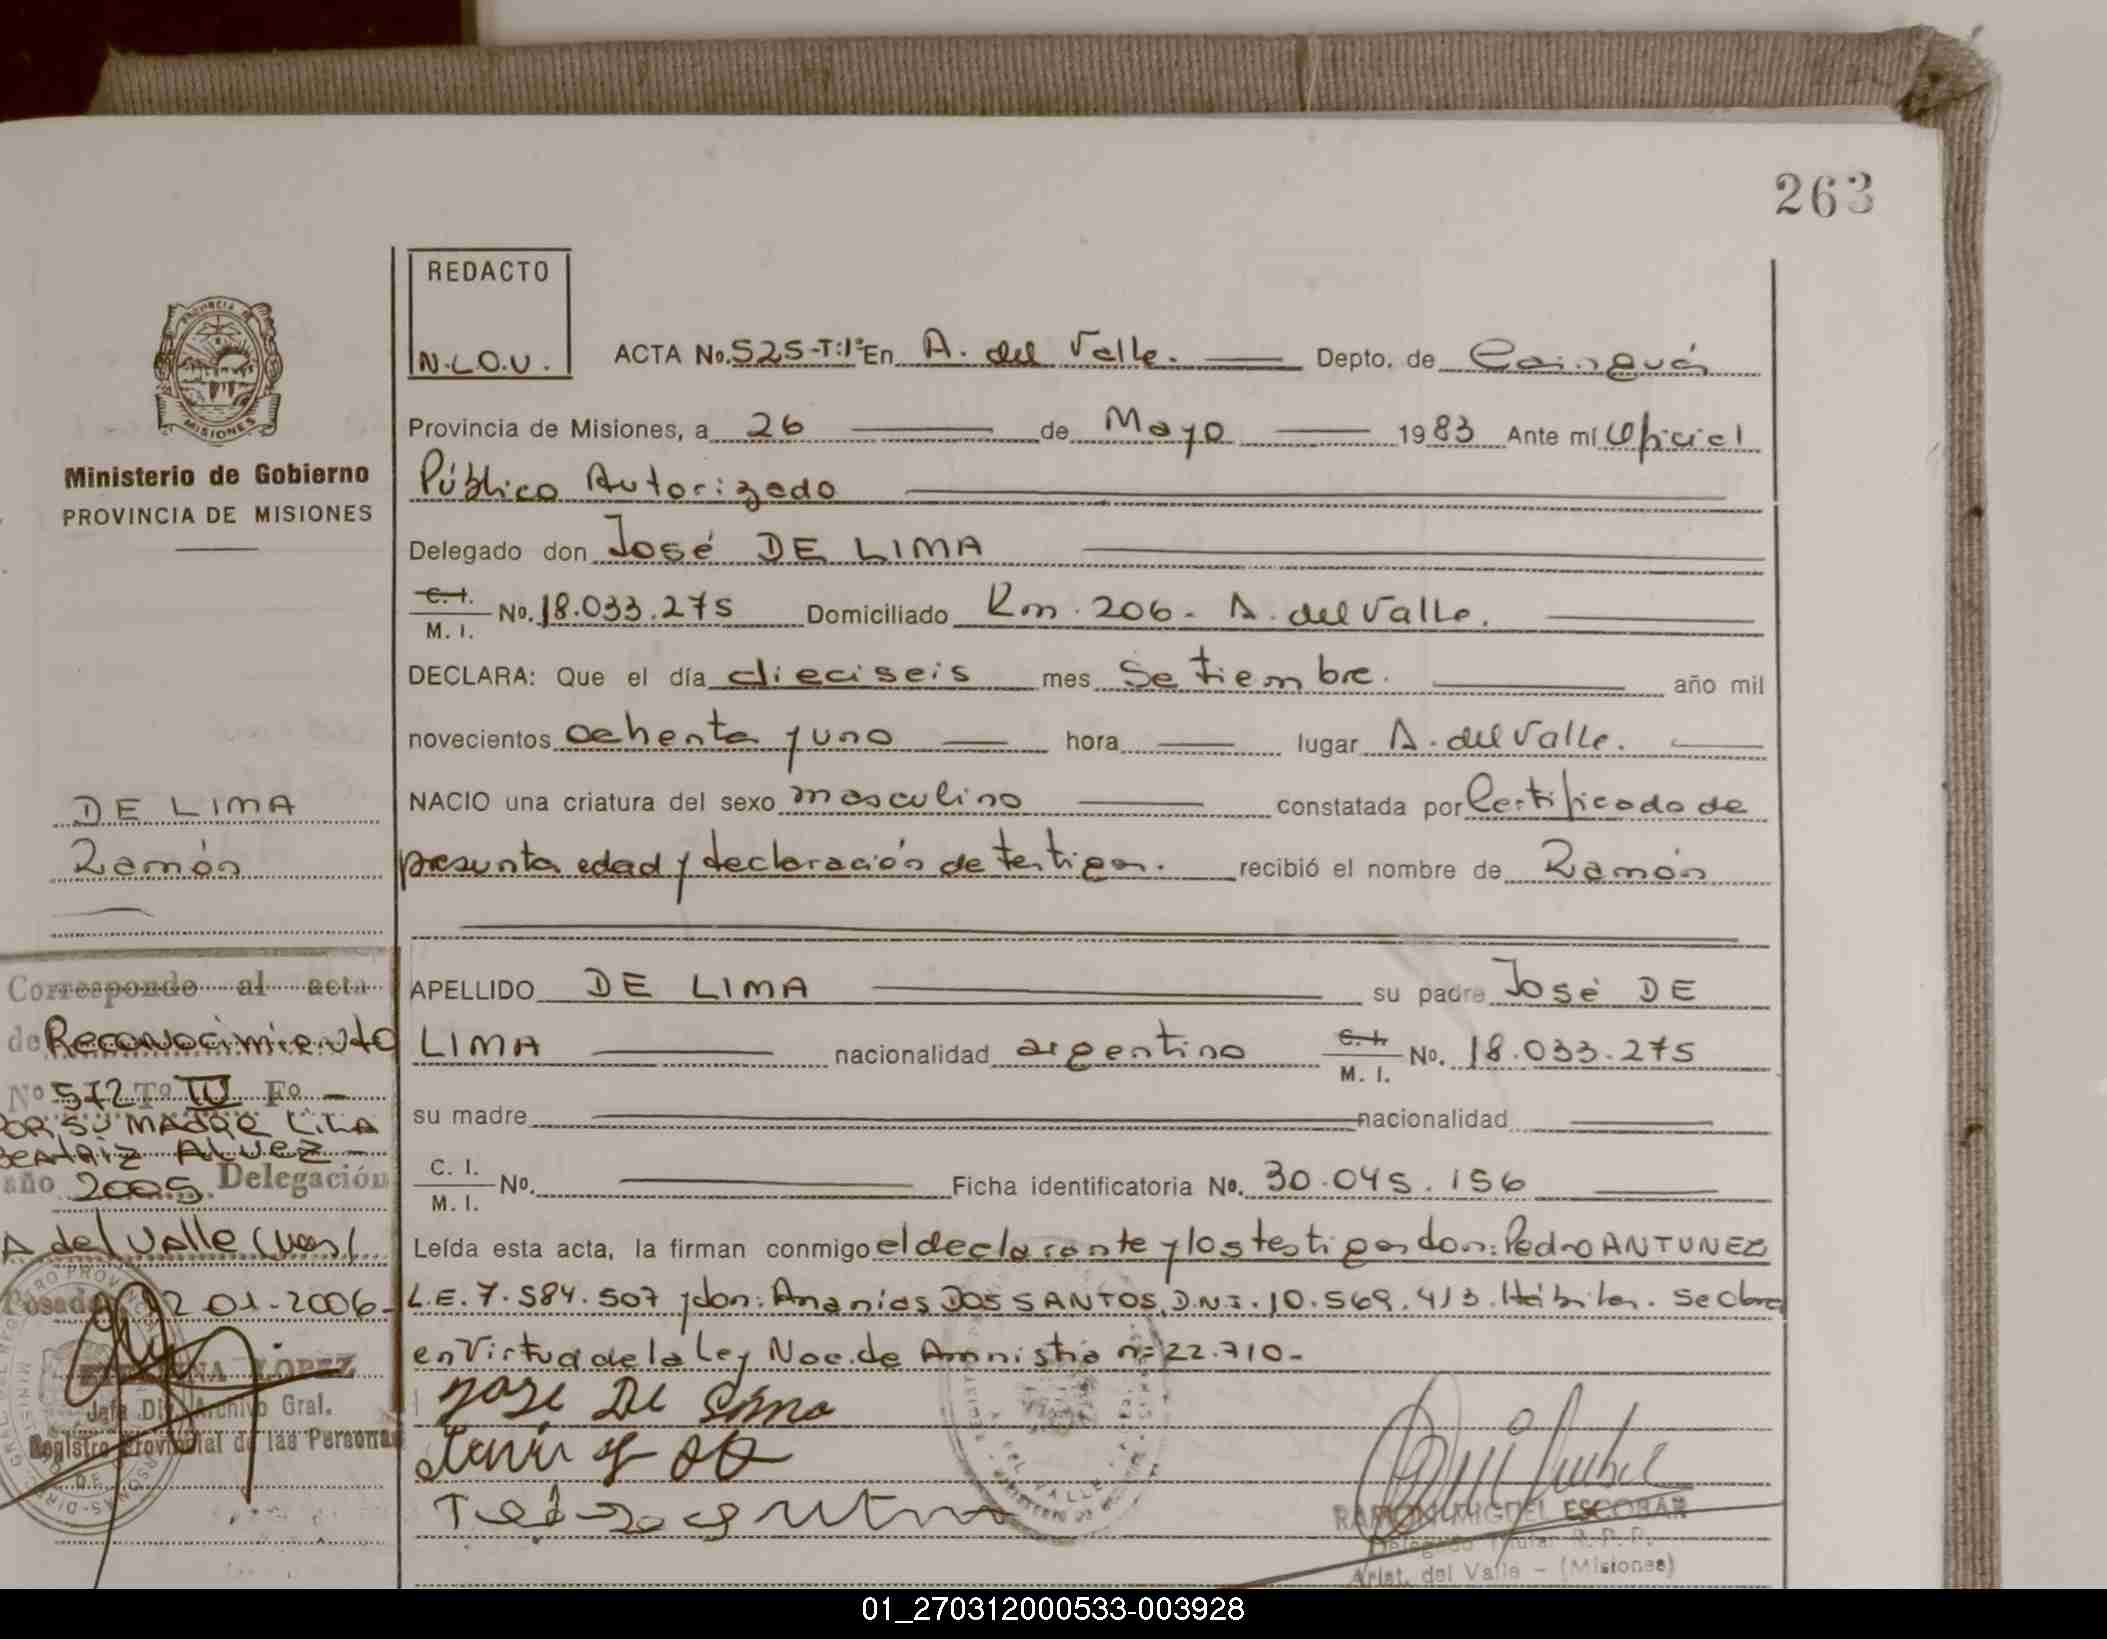 263
REDACTO
N.L.O.U.
ACTA No. 525-T:1º En A. del Valle. Depto. de Cainguás
Provincia de Misiones, a 26 de Mayo 1983 Ante mí Oficial
Público Autorizado
Delegado don José DE LIMA
C. I. M. I. No. 18.033.275 Domiciliado Km. 206 - A. del Valle.
DECLARA: Que el día dieciseis mes Setiembre. año mil
novecientos ochenta y uno hora lugar A. del Valle.
NACIO una criatura del sexo masculino constatada por Certificado de
presunta edad y declaración de testigos. recibió el nombre de Ramón
APELLIDO DE LIMA su padre José DE
LIMA nacionalidad argentino C. I. M. I. No. 18.033.275
su madre nacionalidad
C. I. M. I. No. Ficha identificatoria No. 30.045.156
Leída esta acta, la firman conmigo el declarante y los testigos don: Pedro ANTUNEZ
L.E. 7.584.507 y don: Ananias DOS SANTOS, D.N.I. 10.569.413. Hábiles. Se labra
en Virtud de la Ley Nac. de Amnistia nº 22.710-
RAMON MIGUEL ESCOBAR
Delegado Titular R.P.P.
Arist. del Valle - (Misiones)
PROVINCIA DE
MISIONES
Ministerio de Gobierno
PROVINCIA DE MISIONES
DE LIMA
Ramón
Corresponde al acta
de Reconocimiento
Nº 572 Tº III Fº -
POR SU MADRE LILA
BEATRIZ ALVEZ -
año 2005. Delegación
A del Valle (Mnes)
Posadas 12 01-2006-
LOPEZ
Jefa Div. Archivo Gral.
Registro Provincial de las Personas
01_270312000533-003928